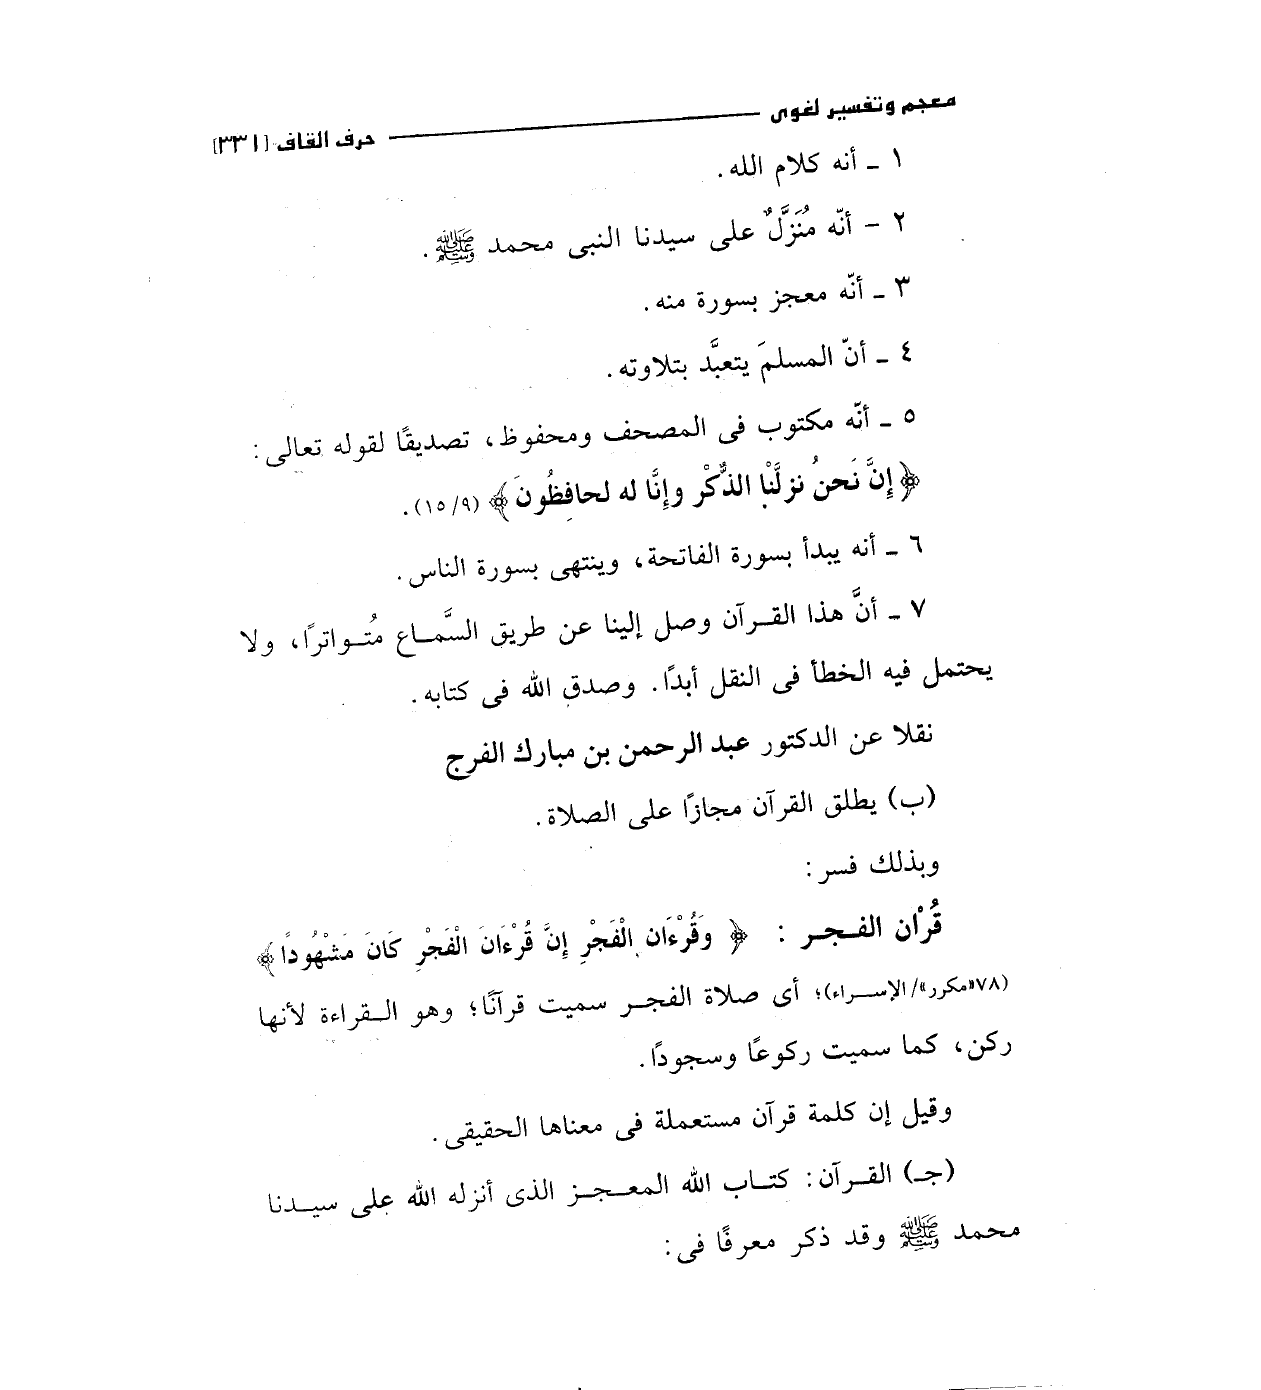 معجم وتفسير لغوى ـــــــ حرف القاف [٣٣١]
١ ـ أنه كلام الله.
٢ - أنّه مُنَزَّلٌ على سيدنا النبى محمد ﷺ.
٣ ـ أنّه معجز بسورة منه.
٤ ـ أنّ المسلمَ يتعبَّد بتلاوته.
٥ ـ أنّه مكتوب فى المصحف ومحفوظ، تصديقًا لقوله تعالى:
﴿إِنَّ نَحنُ نزلَّنْا الذِّكْر وإِنَّا له لحافِظُونَ﴾ (١٥/٩).
٦ ـ أنه يبدأ بسورة الفاتحة، وينتهى بسورة الناس.
٧ ـ أنَّ هذا القرآن وصل إلينا عن طريق السَّماع مُتواترًا، ولا
يحتمل فيه الخطأ فى النقل أبدًا. وصدق الله فى كتابه.
نقلا عن الدكتور عبد الرحمن بن مبارك الفرج
(ب) يطلق القرآن مجازًا على الصلاة.
وبذلك فسر:
قُرْان الفجر : ﴿ وَقُرْءَان الْفَجْرِ إِنَّ قُرْءَانَ الْفَجْرِ كَانَ مَشْهُودًا﴾
(٧٨«مكرر»/الإسراء)؛ أى صلاة الفجر سميت قرآنًا؛ وهو القراءة لأنها
ركن، كما سميت ركوعًا وسجودًا.
وقيل إن كلمة قرآن مستعملة فى معناها الحقيقى.
(جـ) القرآن: كتاب الله المعجز الذى أنزله الله على سيدنا
محمد ﷺ وقد ذكر معرفًا فى: